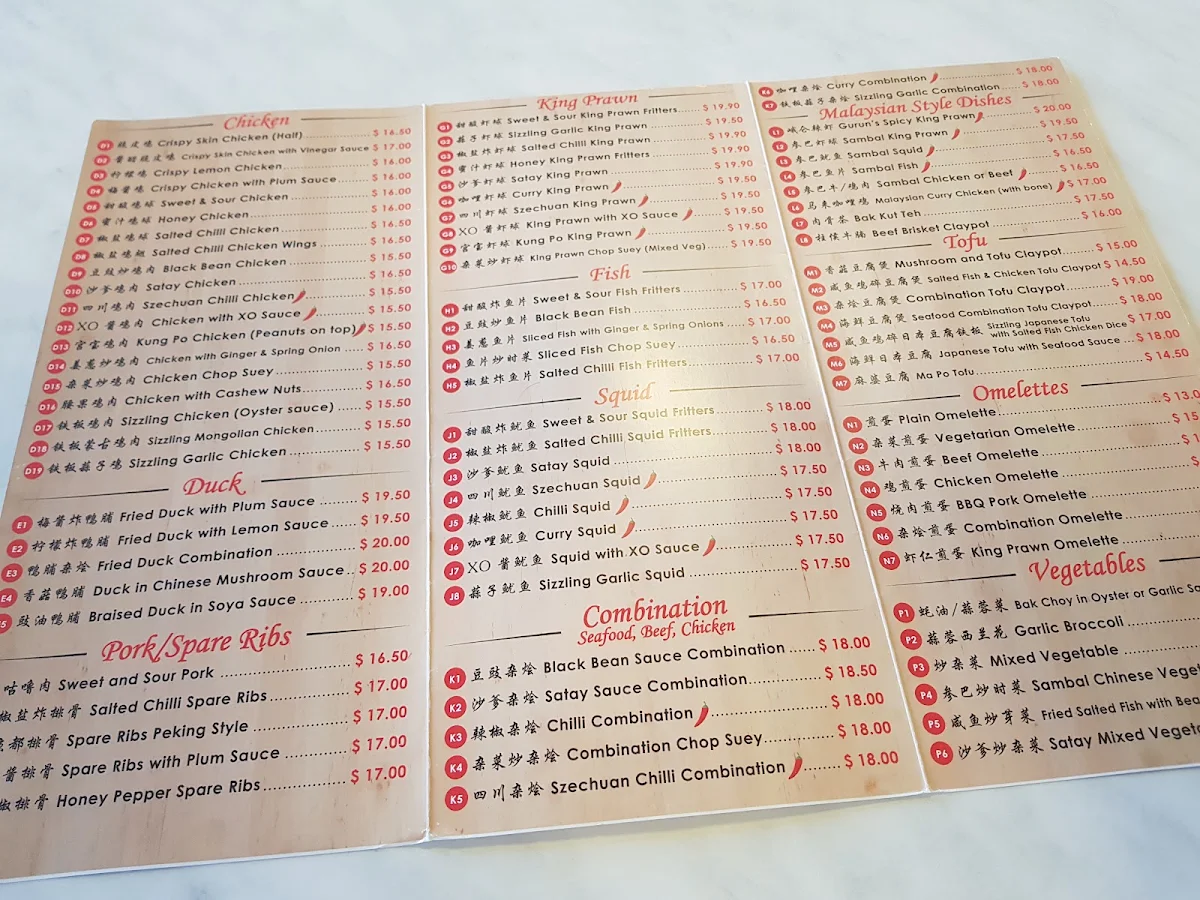 Chicken
D1 脆皮鸡 Crispy Skin Chicken (Half) $ 16.50
D2 醋甜脆皮鸡 Crispy Skin Chicken with Vinegar Sauce $ 17.00
D3 柠檬鸡 Crispy Lemon Chicken $ 16.00
D4 梅酱鸡 Crispy Chicken with Plum Sauce $ 16.00
D5 甜酸鸡球 Sweet & Sour Chicken $ 16.00
D6 蜜汁鸡球 Honey Chicken $ 16.00
D7 椒盐鸡球 Salted Chilli Chicken $ 16.50
D8 椒盐鸡翅 Salted Chilli Chicken Wings $ 16.50
D9 豆豉炒鸡肉 Black Bean Chicken $ 15.50
D10 沙爹鸡肉 Satay Chicken $ 16.50
D11 四川鸡肉 Szechuan Chilli Chicken $ 15.50
D12 XO 酱鸡肉 Chicken with XO Sauce $ 15.50
D13 宫富鸡肉 Kung Po Chicken (Peanuts on top) $ 15.50
D14 姜葱炒鸡肉 Chicken with Ginger & Spring Onion $ 16.50
D15 杂菜炒鸡肉 Chicken Chop Suey $ 15.50
D16 腰果鸡肉 Chicken with Cashew Nuts $ 16.50
D17 铁板鸡肉 Sizzling Chicken (Oyster sauce) $ 15.50
D18 铁板蒙古鸡肉 Sizzling Mongolian Chicken $ 15.50
D19 铁板蒜子鸡 Sizzling Garlic Chicken $ 15.50
Duck
E1 梅酱炸鸭脯 Fried Duck with Plum Sauce $ 19.50
E2 柠檬炸鸭脯 Fried Duck with Lemon Sauce $ 19.50
E3 鸭脯杂烩 Fried Duck Combination $ 20.00
E4 香菇鸭脯 Duck in Chinese Mushroom Sauce $ 20.00
E5 豉油鸭脯 Braised Duck in Soya Sauce $ 19.00
Pork/Spare Ribs
咕噜肉 Sweet and Sour Pork $ 16.50
椒盐炸排骨 Salted Chilli Spare Ribs $ 17.00
都排骨 Spare Ribs Peking Style $ 17.00
酱排骨 Spare Ribs with Plum Sauce $ 17.00
椒排骨 Honey Pepper Spare Ribs $ 17.00
King Prawn
G1 甜酸虾球 Sweet & Sour King Prawn Fritters $ 19.90
G2 蒜子虾球 Sizzling Garlic King Prawn $ 19.50
G3 椒盐炸虾球 Salted Chilli King Prawn $ 19.90
G4 蜜汁虾球 Honey King Prawn Fritters $ 19.90
G5 沙爹虾球 Satay King Prawn $ 19.90
G6 咖哩虾球 Curry King Prawn $ 19.50
G7 四川虾球 Szechuan King Prawn $ 19.50
G8 XO 酱虾球 King Prawn with XO Sauce $ 19.50
G9 宫富虾球 Kung Po King Prawn $ 19.50
G10 杂菜炒虾球 King Prawn Chop Suey (Mixed Veg) $ 19.50
Fish
H1 甜酸炸鱼片 Sweet & Sour Fish Fritters $ 17.00
H2 豆豉炒鱼片 Black Bean Fish $ 16.50
H3 姜葱鱼片 Sliced Fish with Ginger & Spring Onions $ 17.00
H4 鱼片炒时菜 Sliced Fish Chop Suey $ 16.50
H5 椒盐炸鱼片 Salted Chilli Fish Fritters $ 17.00
Squid
J1 甜酸炸鱿鱼 Sweet & Sour Squid Fritters $ 18.00
J2 椒盐炸鱿鱼 Salted Chilli Squid Fritters $ 18.00
J3 沙爹鱿鱼 Satay Squid $ 18.00
J4 四川鱿鱼 Szechuan Squid $ 17.50
J5 辣椒鱿鱼 Chilli Squid $ 17.50
J6 咖哩鱿鱼 Curry Squid $ 17.50
J7 XO 酱鱿鱼 Squid with XO Sauce $ 17.50
J8 蒜子鱿鱼 Sizzling Garlic Squid $ 17.50
Combination
Seafood, Beef, Chicken
K1 豆豉杂烩 Black Bean Sauce Combination $ 18.00
K2 沙爹杂烩 Satay Sauce Combination $ 18.50
K3 辣椒杂烩 Chilli Combination $ 18.00
K4 杂菜炒杂烩 Combination Chop Suey $ 18.00
K5 四川杂烩 Szechuan Chilli Combination $ 18.00
K6 咖哩杂烩 Curry Combination $ 18.00
K7 铁板蒜子杂烩 Sizzling Garlic Combination $ 18.00
Malaysian Style Dishes
L1 峨仑辣虾 Gurun's Spicy King Prawn $ 20.00
L2 参巴虾球 Sambal King Prawn $ 19.50
L3 参巴鱿鱼 Sambal Squid $ 17.50
L4 参巴鱼片 Sambal Fish $ 16.50
L5 参巴牛/鸡肉 Sambal Chicken or Beef $ 16.50
L6 马来咖哩鸡 Malaysian Curry Chicken (with bone) $ 17.00
L7 肉骨茶 Bak Kut Teh $ 17.50
L8 柱侯牛腩 Beef Brisket Claypot $ 16.00
Tofu
M1 香菇豆腐煲 Mushroom and Tofu Claypot $ 15.00
M2 咸鱼鸡碎豆腐煲 Salted Fish & Chicken Tofu Claypot $ 14.50
M3 杂烩豆腐煲 Combination Tofu Claypot $ 19.00
M4 海鲜豆腐煲 Seafood Combination Tofu Claypot $ 18.00
M5 咸鱼鸡碎日本豆腐铁板 Sizzling Japanese Tofu with Salted Fish Chicken Dice $ 17.00
M6 海鲜日本豆腐 Japanese Tofu with Seafood Sauce $ 18.00
M7 麻婆豆腐 Ma Po Tofu $ 14.50
Omelettes
N1 煎蛋 Plain Omelette $ 13.0
N2 杂菜煎蛋 Vegetarian Omelette $ 15
N3 牛肉煎蛋 Beef Omelette $ 1
N4 鸡煎蛋 Chicken Omelette $
N5 烧肉煎蛋 BBQ Pork Omelette
N6 杂烩煎蛋 Combination Omelette
N7 虾仁煎蛋 King Prawn Omelette
Vegetables
P1 蚝油/蒜蓉菜 Bak Choy in Oyster or Garlic Sa
P2 蒜蓉西兰花 Garlic Broccoli
P3 炒杂菜 Mixed Vegetable
P4 参巴炒时菜 Sambal Chinese Veget
P5 咸鱼炒芽菜 Fried Salted Fish with Bea
P6 沙爹炒杂菜 Satay Mixed Vegeta